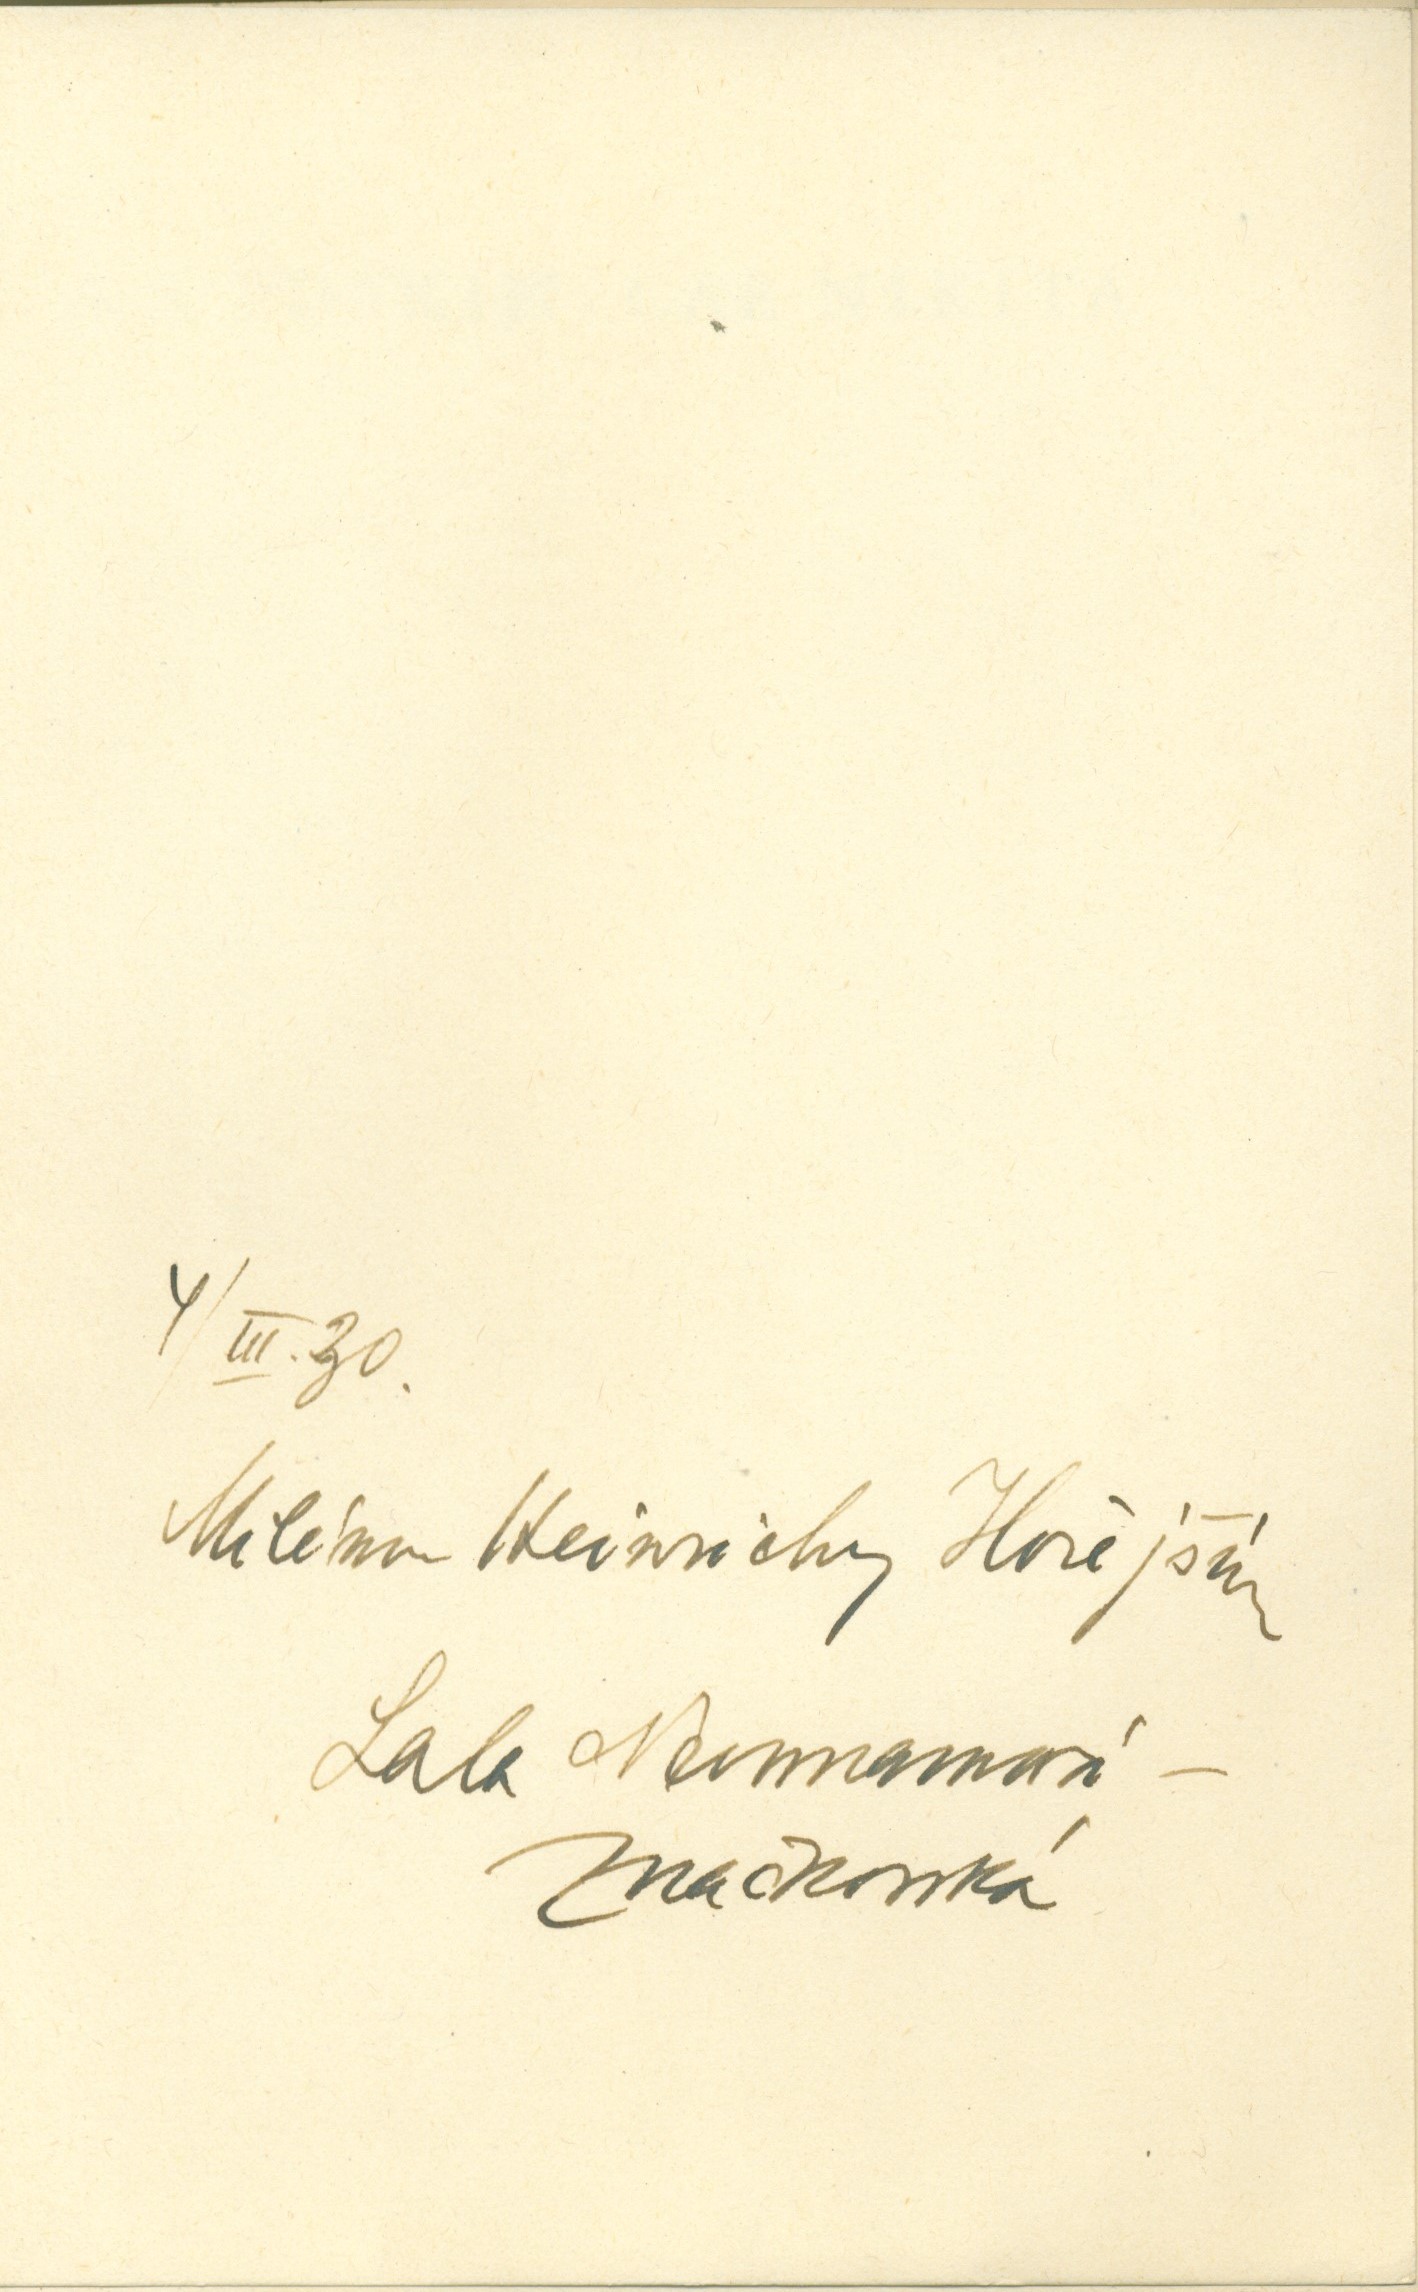 4/III.30.
Milému Heinrichu Hořejšímu
Lala Neumannová –
Značkovská